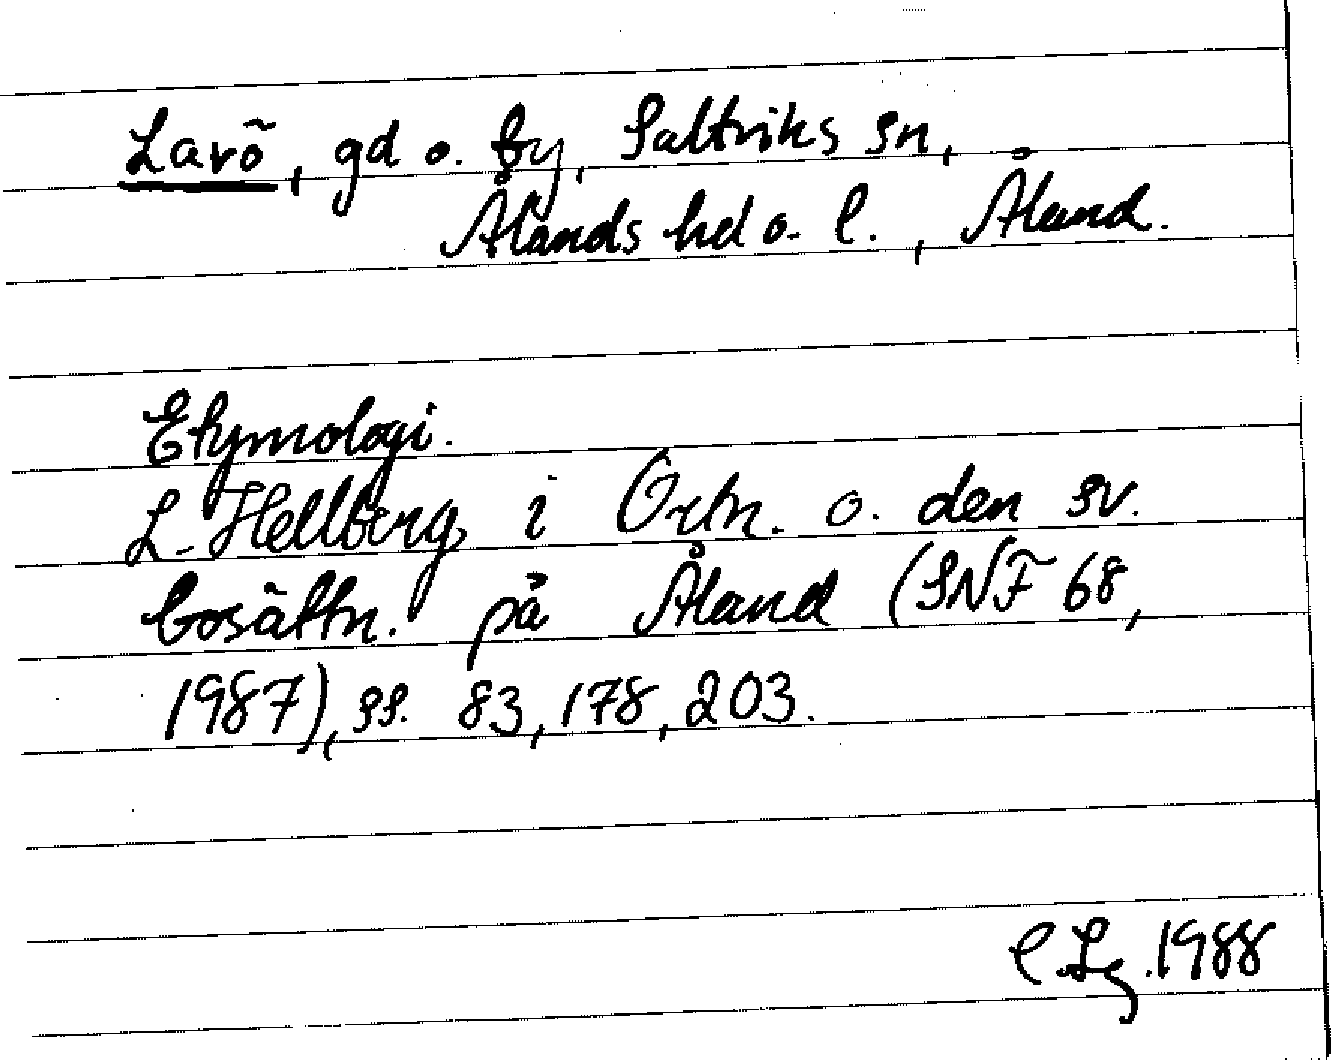 Lavö, gd o. by, Saltviks sn,
Ålands hd o. l., Åland.
Etymologi.
L. Hellberg i Ortn. o. den sv.
bosättn. på Åland (SNF 68,
1987), ss. 83, 178, 203.
1988